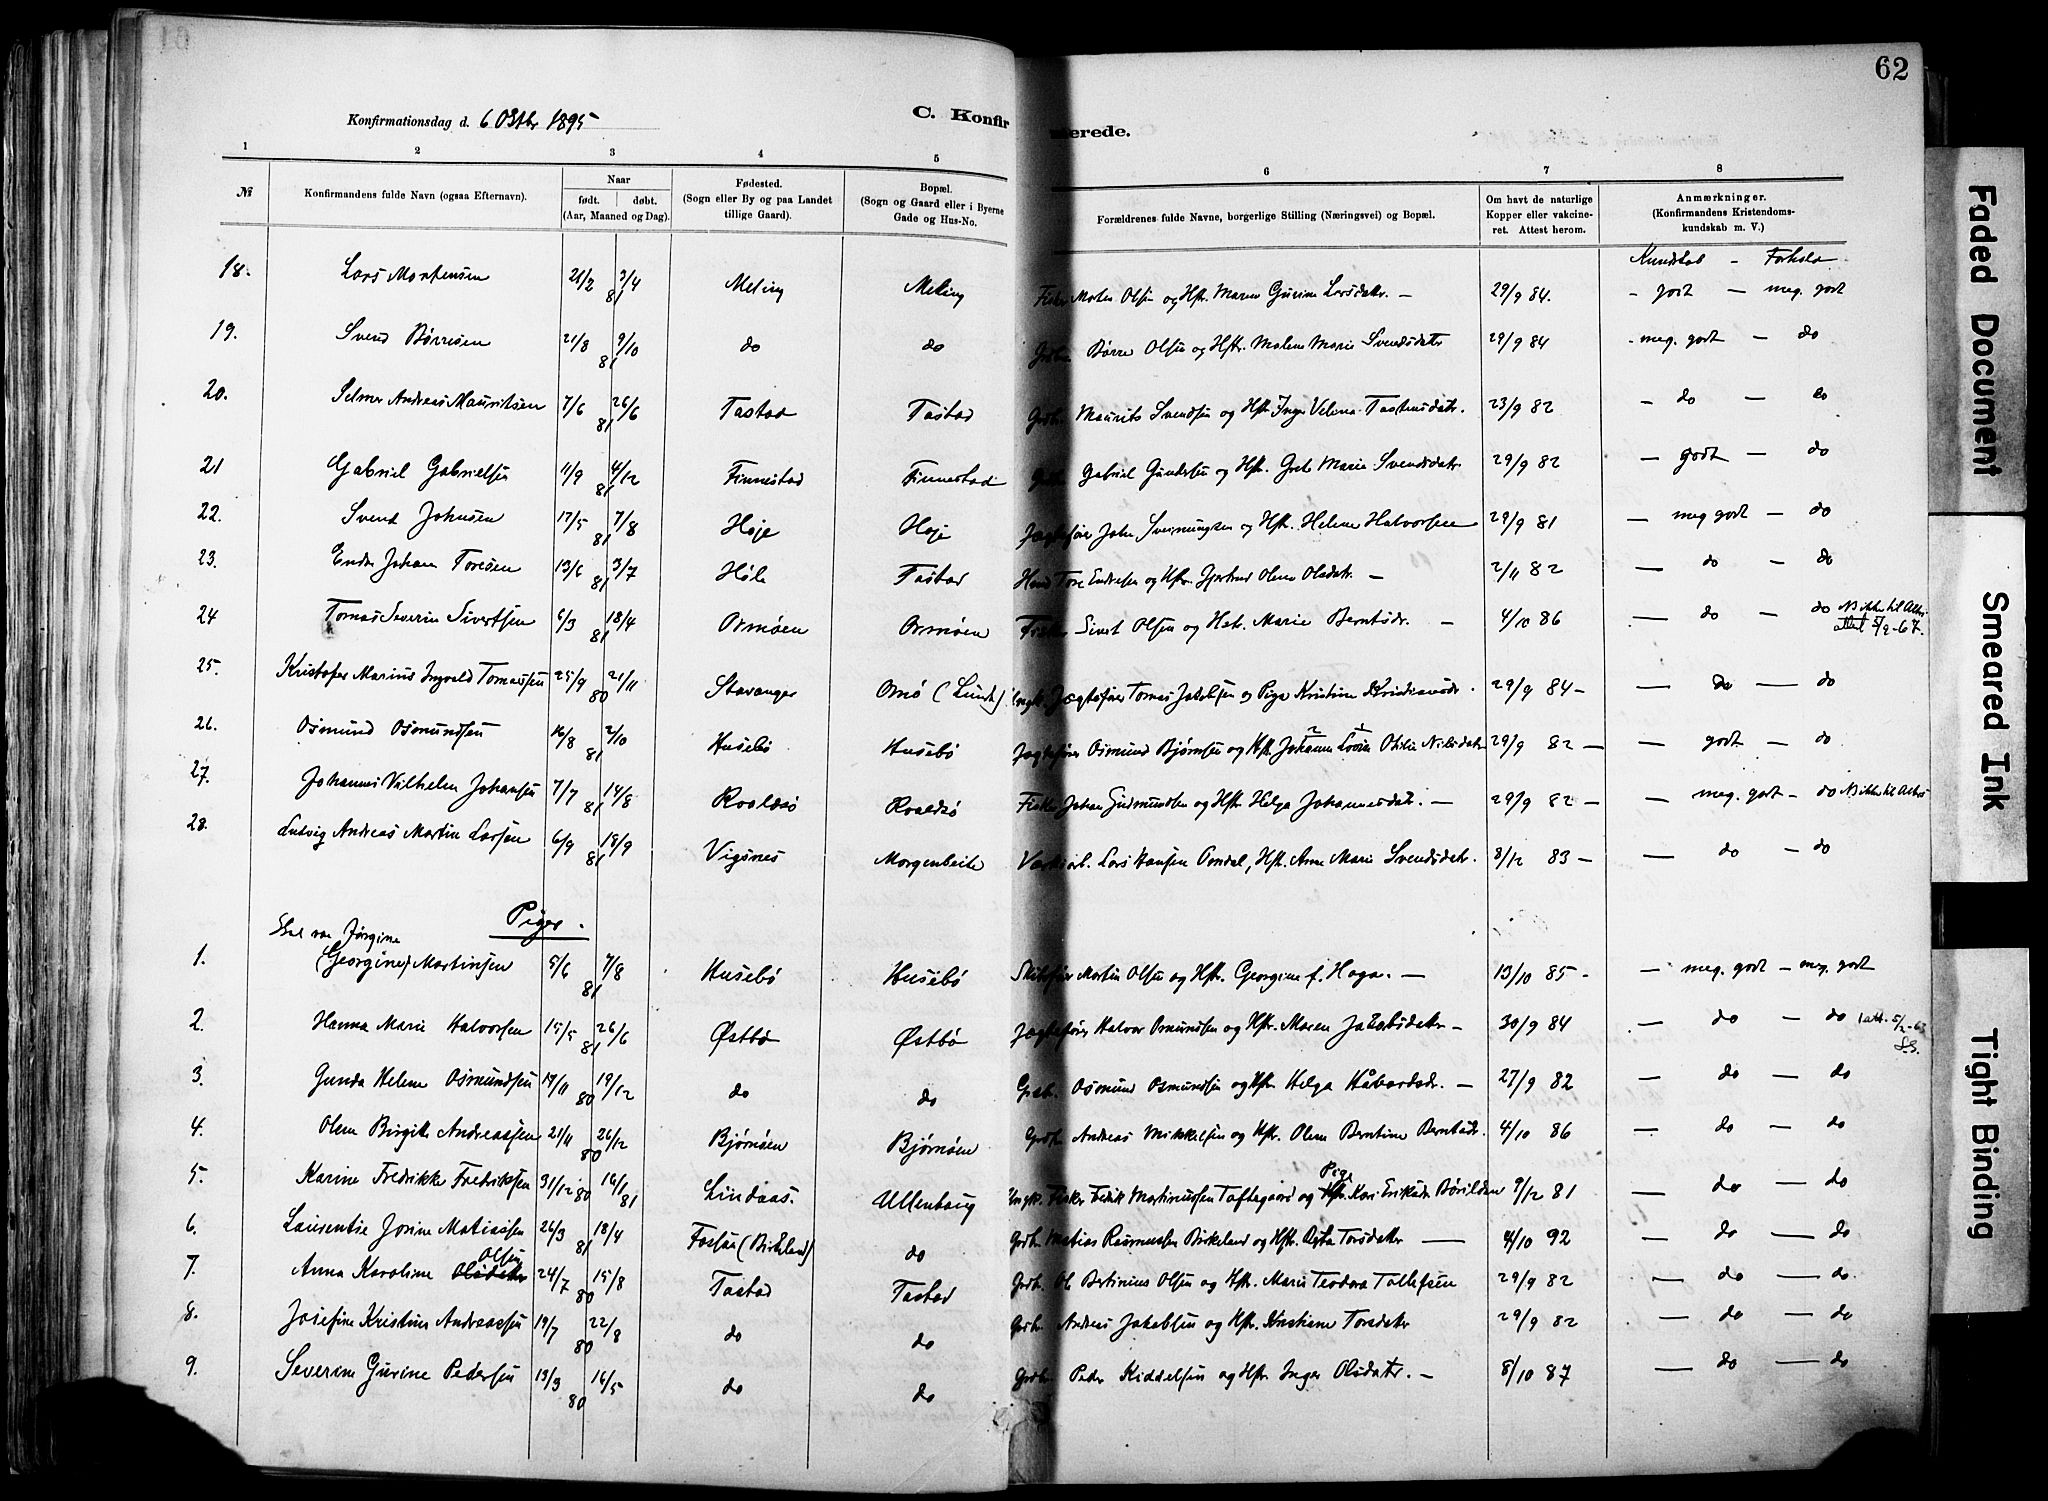 62
Konfirmationsdag d. 6 Oktbr 1895
C. Konfirmerede.
1 2 3 4 5 6 7 8
№
Konfirmandens fulde Navn (ogsaa Efternavn).
Naar
født. døbt.
(Aar, Maaned og Dag).
Fødested.
(Sogn eller By og paa Landet
tillige Gaard).
Bopæl.
(Sogn og Gaard eller i Byerne
Gade og Hus-No.
Forældrenes fulde Navne, borgerlige Stilling (Næringsvei) og Bopæl.
Om havt de naturlige
Kopper eller vakcine-
ret. Attest herom.
Anmærkninger.
(Konfirmandens Kristendoms-
kundskab m. V.)
Kundskab - Forhold
18. Lars Mortensen 21/2 81 3/4 Meling Meling Fisker Morten Olsen og Hstr. Maren Gurine Larsdatr. — 29/9 84. - godt — meg. godt
19. Svend Børresen 21/8 81 9/10 do do Grdbr. Børre Olsen og Hstr. Malene Marie Svendsdatr 29/9 84 - meg. godt — do
20. Selmer Andreas Mauritsen 7/6 81 26/6 Tastad Tastad Grdbr. Maurits Svendsen og Hstr. Inger Velena Tastensdatr. 23/9 82 — do — do
21 Gabriel Gabrielsen 11/9 81 4/12 Finnestad Finnestad Grdbr. Gabriel Gundersen og Hstr. Grete Marie Svendsdatr. 29/9 82 — godt — do
22. Svend Johnsen 17/5 81 7/8 Høje Høje Jægtefører John Sveinungsen og Hstr. Helene Halvorsen 29/9 81 — meg godt — do
23. Endre Johan Toresen 13/6 81 3/7 Høle Tastad Hmd Tore Endresen og Hstr. Gjertrud Olene Olsdatr. — 2/11 82 — do — do
24 Tomas Severin Sivertsen 6/3 81 18/4 Ormøen Ormøen Fisker Sivert Olsen og Hstr. Marie Berntsdr. — 4/10 86 — do — do N ikke til Alters
attest 5/2-67.
25. Kristofer Marius Ingvald Tomassen 25/9 80 21/11 Stavanger Omø (Linde) Ungk. Jægtefører Tomas Jakobsen og Pige Kristine Kristiansdr. 29/9 84 - — do — do
26. Osmund Osmundsen 16/8 81 2/10 Husebø Husebø Jægtefører Osmund Bjørnsen og Hstr. Johanne Lovise Othilie Nilsdatr 29/9 82 — — godt — do
27. Johannes Vilhelm Johansen 7/7 81 14/8 Roaldsø Roaldsø Fisker Johan Gudmundsen og Hstr. Helga Johannesdatr. — 29/9 82 — — meg. godt — do N ikke til Alters
28. Ludvig Andreas Martin Larsen 6/9 81 18/9 Vigsnes Morgenbeite Larshansen Omdal, Hstr. Anne Marie Svendsdatr. 8/12 83 — — do — do
Piger.
Skal være Jørgine
1. (Georgine) Martinsen 5/6 81 7/8 Husebø Husebø Skibsfører Martin Olsen og Hstr. Georgine f. Haga. — 13/10 85 - — meg. godt — meg. godt
2. Hanna Marie Halvorsen 15/5 81 26/6 Østbø Østbø Jægtefører Halvor Osmundsen og Hstr. Maren Jakobsdatr — 30/9 84 — do — do 1 att. 5/2-63
S.S.
3. Gunda Helene Osmundsen 14/11 80 19/12 do do Grdbr. Osmund Osmundsen og Hstr. Helga Håvardsdr. — 27/9 82 — do — do
4. Olene Birgitte Andreassen 21/11 80 26/12 Bjørnøen Bjørnøen Grdbr Andreas Mikkelsen og Hstr. Olene Berntine Berntsdr. 4/10 86 — do — do
5. Karine Fredrikke Fredriksen 31/12 80 16/1 81 Lindaas. Ullenhaug Ungk. Fisker Fredrik Martinussen Toftegaard og Hstr. Pige Kari Eriksdr Børilden 9/12 81 — do — do
6. Laurentse Josine Matiassen 26/3 81 18/4 Fossan (Birkeland) do Grdbr. Matias Rasmussen Birkeland og Hstr. Asta Torsdatr — 4/10 92 — do — do
7. Anna Karoline Olsdatr Olsen 24/7 80 15/8 Tastad Tastad Grdbr. Ol Bertinius Olsen og Hstr. Marie Teodora Tollefsen 29/9 82 — do — do
8. Josefine Kristine Andreassen 19/7 80 22/8 do do Grdbr. Andreas Jakobsen og Hstr. Kristiane Torsdatr 29/9 82 — do — do
9. Severine Gurine Pedersen 13/3 80 16/5 do do Grdbr Peder Kiddelsen og Hstr. Inger Olsdatr. — 8/10 87 — do — do
Faded Document
Smeared Ink
Tight Binding